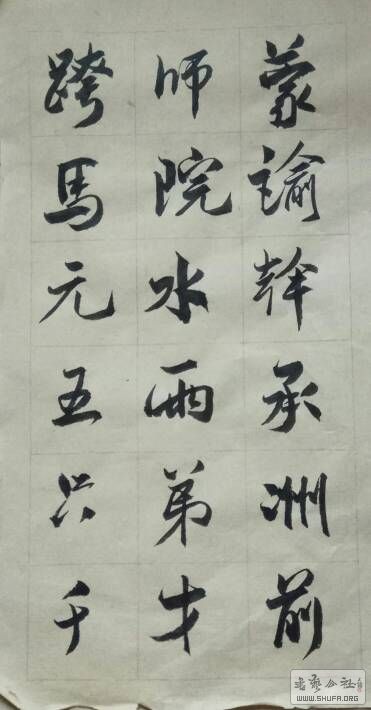 蒙諭幹承洲前
师院水兩弟才
跨馬元五只千
书艺公社
WWW.SHUFA.ORG